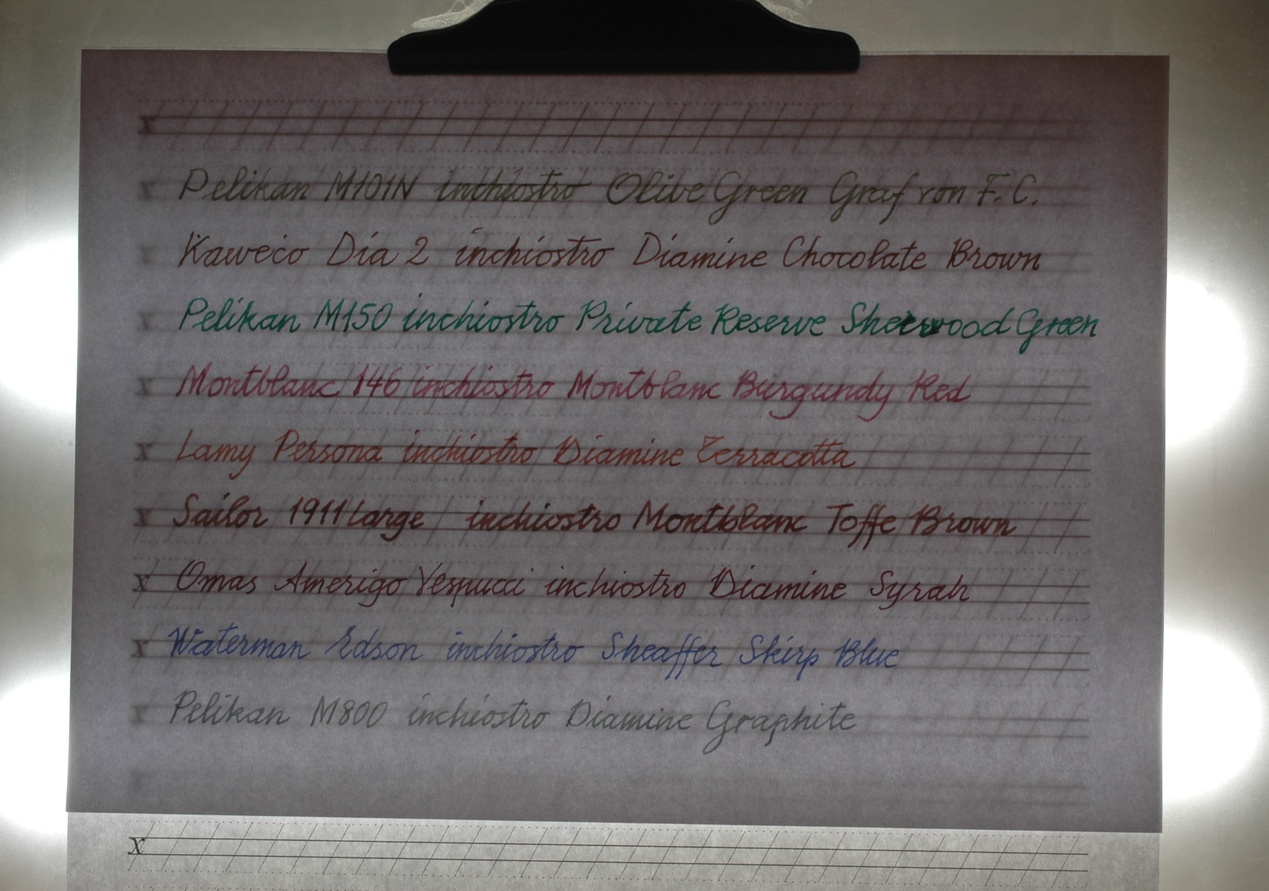 x
Pelikan M101N inchiostro Olive Green Graf von F.C.
x Kaweco Dia 2 inchiostro Diamine Chocolate Brown
x Pelikan M150 inchiostro Private Reserve Sherwood Green
x Montblanc 146 inchiostro Montblanc Burgundy Red
x Lamy Persona inchiostro Diamine Terracotta
x Sailor 1911 Large inchiostro Montblanc Toffe Brown
x Omas Amerigo Vespucci inchiostro Diamine Syrah
x Waterman Edson inchiostro Sheaffer Skirp Blue
x Pelikan M800 inchiostro Diamine Graphite
x